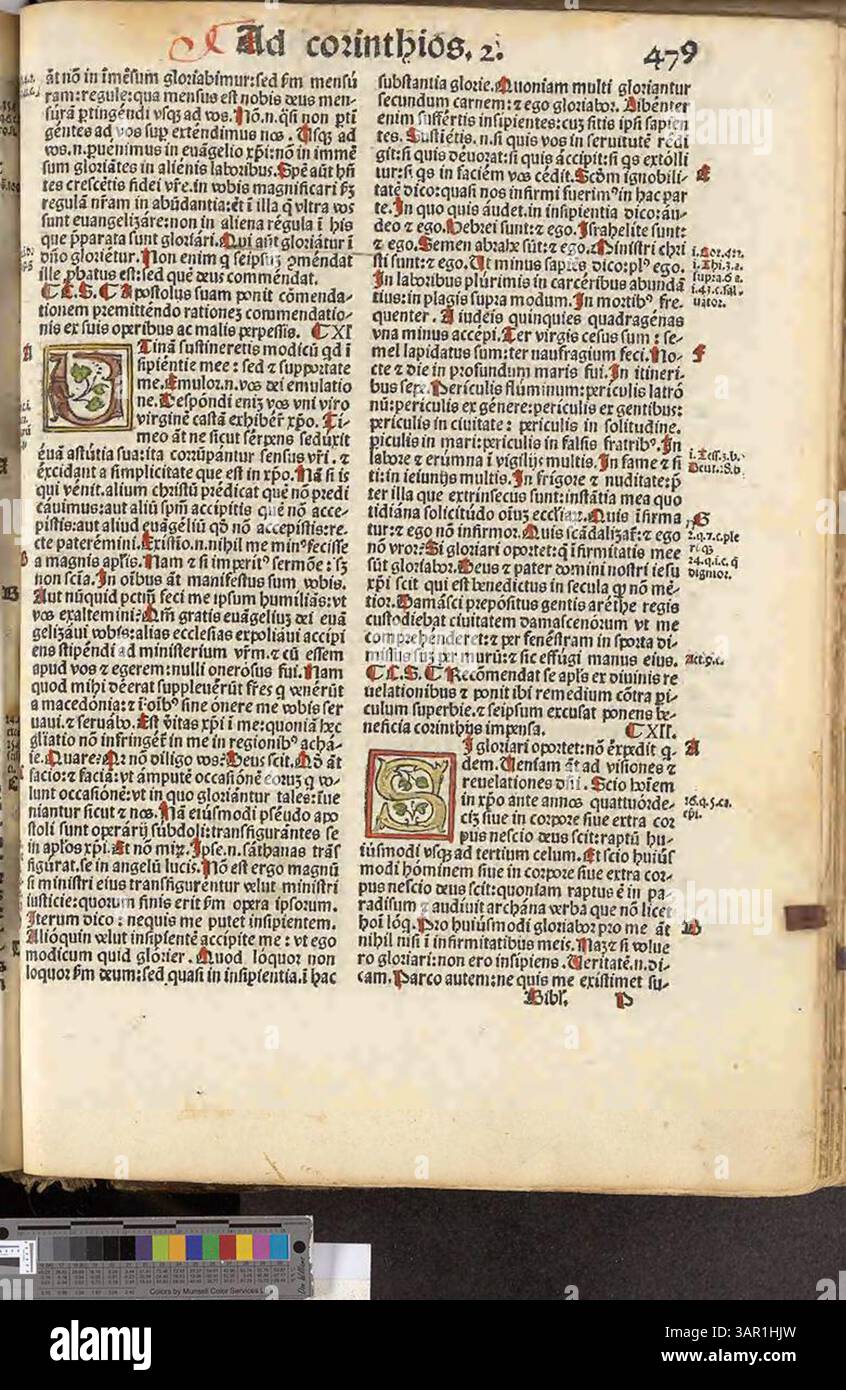 Ad corinthios. 2.
479
āt nō in īmēsum gloriabimur: sed ẜm mensū
ram: regule: qua mensus est nobis deus men-
surā ꝑtingendi vsqꝫ ad vos. Nō.n. q̄si non ꝑti
gētes ad vos suꝑ extendimus nos. Usqꝫ ad
vos.n.ꝑuenimus in euāgelio xp̄i: nō in immē
sum gloriātes in alienis laboribus. Spē aūt hn̄
tes crescētis fidei vr̄e. in vobis magnificari ẜm
regulā nr̄am in abūdantia: et̄ i illa q̄ vltra vos
sunt euangelizāre: non in aliena regula ī his
que p̄parata sunt gloriāri. Qui aūt gloriātur ī
dn̄o gloriētur. Non enim q̇ seipsuꝫ ꝯmēdat
ille ꝓbatus est: sed quē deus commēdat.
¶ L.S. ¶ Apostolus suam ponit cōmenda-
tionem premittēdo rationeꝫ commendatio-
nis ex suis operibus ac malis perpessis. ¶ XI
A
UTinā sustineretis modicū qd ī
sipiētie mee: sed ⁊ supportate
me. Emulor.n.vos dei emulatio
ne. Despōdi eniꝫ vos vni viro
virginē castā exhibēr xp̄o. Ti-
meo āt ne sicut sērpens sedūxit
ēuā astūtia sua: ita corrūpātur sensus vr̄i. ⁊
ēxcidant a simplicitate que est in xp̄o. Nā si is
qui vēnit. alium christū prēdicat quē nō predi
cāuimus: aut aliū spm̄ accipitis quē nō acce-
pistis: aut aliud euāgēliū qd̄ nō accepistis: re-
cte paterēmini. Existīo.n.nihil me minꝰ fecisse
a magnis apl̄is. Nam ⁊ si imperitꝰ sermōe: sꝫ
non sciā. In oībus āt manifestus sum vobis.
B
Aut nūquid pctm̄ feci me ipsum humiliās: vt
vos exaltemini? Qm̄ gratis euāgēliuꝫ dei euā
gelizāui vobis: alias ecclesias expoliaui accipi
ens stipēdi ad ministerium vr̄m. ⁊ cū essem
apud vos ⁊ egerem: nulli onerōsus fui. Nam
quod mihi dēerat suppleuērūt fr̄es q̇ venērūt
a macedōnia: ⁊ ī oībꝰ sine ōnere me vobis ser
uaui. ⁊ seruābo. Est vītas xp̄i ī me: quoniā hec
gl̄iatio nō infringēt̄ in me in regionibꝰ achā-
ie. Quare? Qr̄ nō diligo vos? Deus scit. Qd̄ āt
facio: ⁊ faciā: vt ampūtē occasiōnē eoruꝫ q̇ vo-
lunt occasiōnē: vt in quo gloriāntur tales: īue
niantur sicut ⁊ nos. Nā eiūsmodi psēudo apo
stoli sunt operārij sūbdoli: transfigurāntes se
in apl̄os xp̄i. Et nō miꝝ. Ipse.n. sāthanas trās
figūrat. se in angelū lucis. Nō est ergo magnū
si ministri eius transfigurēntur velut ministri
iusticie: quorum finis erit ẜm opera ipsorum.
Iterum dico: nequis me putet insipientem.
Aliōquin velut insipiētē accipite me: vt ego
modicum quid glōrier. Quod lōquor non
loquor ẜm deum: sed quasi in insipiētia. ī hac
substantia glorie. Quoniam multi gloriantur
secundum carnem: ⁊ ego gloriabor. Libēnter
enim suffērtis insipientes: cuꝫ sitis ipsi sapien
tes. Sustiētis.n. si quis vos in seruitutē redi
git: si quis dēuorat: si quis āccipit: si q̇s extōlli
tur: si q̇s in faciēm vos cēdit. Scd̄m ignobili-
E
tatē dico: quasi nos infirmi fuerimꝰ in hac par
te. In quo quis āudet. in insipiētia dico: āu-
deo ⁊ ego. Hebrei sunt: ⁊ ego. Israhelite sunt:
⁊ ego. Semen abrahe sūt: ⁊ ego. Ministri chri
i. Cor. 4.
sti sunt: ⁊ ego. Ut minus sapiēs dico: plꝰ ego.
i. Thi. 3. a.
In laboribus plūrimis in carcēribus abundā
supra. 6. a
tius: in plagis supra modum. In mortibꝰ fre-
quenter. A iudeis quinquies quadragēnas
vna minus accēpi. Ter virgis cesus sum: se-
mel lapidatus sum: ter naufragium feci. No-
F
cte ⁊ die in profundum maris fui. In itineri-
bus sepe. Periculis flūminum: periculis latrō
nū: periculis ex gēnere: periculis ex gentibus:
periculis in ciuitate: periculis in solitudine.
ꝑiculis in mari: periculis in falsis fratribꝰ. In
labōre ⁊ erūmna ī vigilijs multis. In fame ⁊ si
ti: in ieiunijs multis. In frigore ⁊ nuditate: p̄
ter illa que extrinsecus sunt: instātia mea quo
tidiāna solicitūdo oīuꝫ eccl̄iaꝝ. Quis īfirma
G
tur: ⁊ ego nō infirmor. Quis scādalizat̄: ⁊ ego
nō vror? Si gloriari oportet: q̄ īfirmitatis mee
sūt gloriabor. Deus ⁊ pater domini nostri iesu
dignior.
xp̄i scit qui est benedictus in secula qꝫ nō mē-
tior. Damāsci prepōsitus gentis arēthe regis
custodiebat ciuitatem damascenōrum vt me
comprehēnderet: ⁊ per fenēstram in sporta di-
missus suꝫ per murū: ⁊ sic effūgi manus eius.
Act. 9. c.
¶ L.S. ¶ Recōmendat se apl̄s ex diuinis re
uelationibus ⁊ ponit ibi remedium cōtra ꝑi-
culum superbie. ⁊ seipsum excusat ponens be-
neficia corinthijs impensa. ¶ XII.
A
SI gloriari oportet: nō ēxpedit q̇
dem. Ueniam āt ad visiones ⁊
reuelationes dn̄i. Scio hoīem
in xp̄o ante annos quattuōrde-
ciꝫ siue in corpore siue extra cor
pus nescio deus scit: raptū hu-
iūsmodi vsqꝫ ad tertium celum. Et scio huiūs
modi hōminem siue in corpore siue extra cor-
pus nescio deus scit: quoniam raptus ē in pa-
radisum ⁊ audiuit archāna verba que nō licet
hoī lōq̇. Pro huiūsmodi gloriabor pro me āt
B
nihil nisi ī infirmitatibus meis. Naꝫ ⁊ si volue
ro gloriari: non ero insipiens. Ueritatē.n. di-
cam. Parco autem: ne quis me existimet su-
Bibl. P
Colors by Munsell Color Services
alamy
Image ID: 3AR1HJW
www.alamy.com